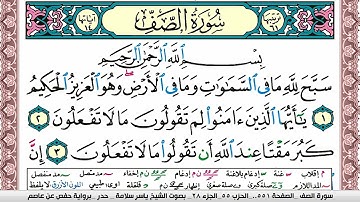 سُورَةُ الصَّفِّ
بِسْمِ ٱللَّهِ ٱلرَّحْمَٰنِ ٱلرَّحِيمِ
سَبَّحَ لِلَّهِ مَا فِي ٱلسَّمَٰوَٰتِ وَمَا فِي ٱلْأَرْضِ وَهُوَ ٱلْعَزِيزُ ٱلْحَكِيمُ
١ يَٰٓأَيُّهَا ٱلَّذِينَ ءَامَنُوا۟ لِمَ تَقُولُونَ مَا لَا تَفْعَلُونَ ٢
كَبُرَ مَقْتًا عِندَ ٱللَّهِ أَن تَقُولُوا۟ مَا لَا تَفْعَلُونَ ٣ إِنَّ
سورة الصف الصفحة ٥٥١ الحزب ٥٥ الجزء ٢٨ بصوت الشيخ ياسر سلامة حدر برواية حفص عن عاصم